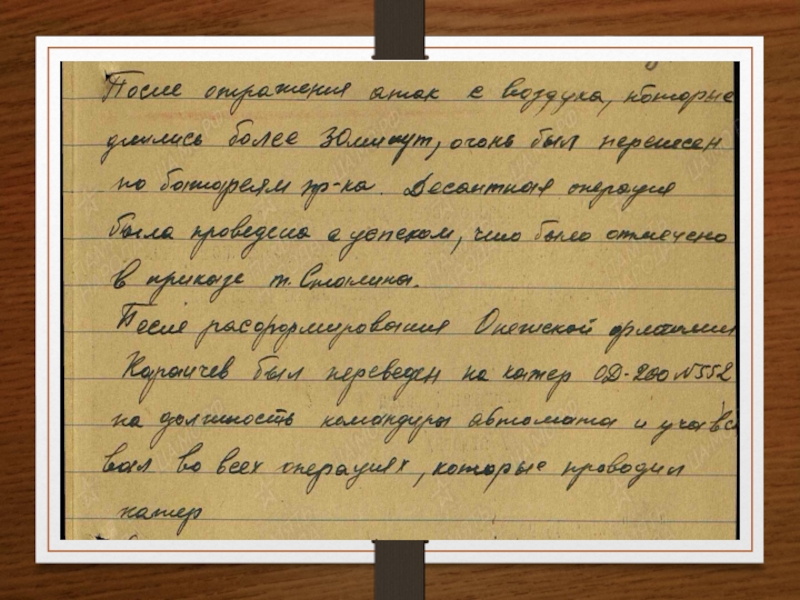 После отражения атак с воздуха, которые
длились более 30 минут, огонь был перенесен
по батареям пр-ка. Десантная операция
была проведена с успехом, что было отмечено
в приказе т. Сталина.
После расформирования Онежской флотилии
Караичев был переведен на катер ОД-200 №552
на должность командира автомата и участво
вал во всех операциях, которые проводил
катер